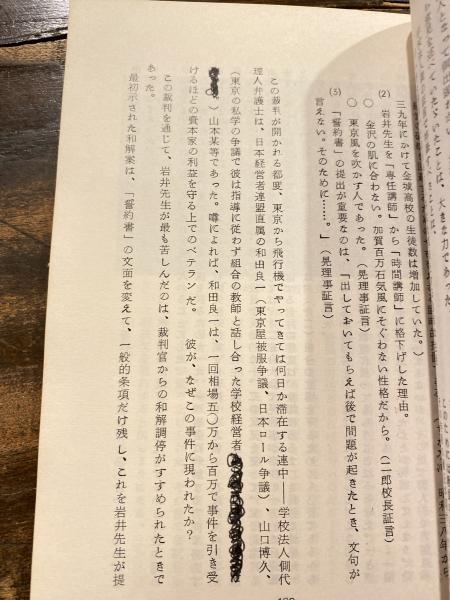 三九年にかけて金城高校の生徒数は増加していた。)
(2) 岩井先生を「専任講師」から「時間講師」に格下げした理由。
○ 金沢の肌に合わない。加賀百万石気風にそぐわない性格だから。(二郎校長証言)
○ 東京風を吹かす人であった。(晃理事証言)
(3) 「誓約書」の提出が重要なのは、「出しておいてもらえば後で問題が起きたとき、文句が
言えない。そのために……。」(晃理事証言)
この裁判が開かれる都度、東京から飛行機でやってきては何日か滞在する連中――学校法人側代
理人弁護士は、日本経営者連盟直属の和田良一(東京屋被服争議、日本ロール争議)、山口博久、
(東京の私学の争議で彼は指導に従わず組合の教師と話し合った学校経営者
)山本某等であった。噂によれば、和田良一は、一回相場五〇万から百万で事件を引き受
けるほどの資本家の利益を守る上でのベテランだ。 彼が、なぜこの事件に現われたか?
この裁判を通じて、岩井先生が最も苦しんだのは、裁判官からの和解調停がすすめられたときで
あった。
最初示された和解案は、「誓約書」の文面を変えて、一般的条項だけ残し、これを岩井先生が提